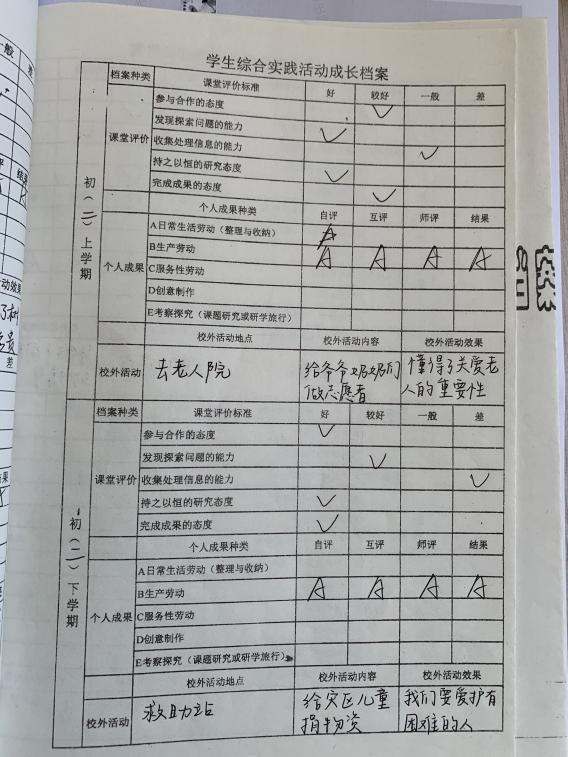 学生综合实践活动成长档案
初(二)上学期
档案种类 课堂评价标准 好 较好 一般 差
课堂评价
参与合作的态度 ✓
发现探索问题的能力 ✓
收集处理信息的能力 ✓
持之以恒的研究态度 ✓
完成成果的态度 ✓
个人成果种类 自评 互评 师评 结果
个人成果
A日常生活劳动(整理与收纳)
B生产劳动 A A A A
C服务性劳动
D创意制作
E考察探究(课题研究或研学旅行)
校外活动地点 校外活动内容 校外活动效果
校外活动 去老人院 给爷爷奶奶们 懂得了关爱老
做志愿者 人的重要性
初(二)下学期
档案种类 课堂评价标准 好 较好 一般 差
课堂评价
参与合作的态度 ✓
发现探索问题的能力 ✓
收集处理信息的能力 ✓
持之以恒的研究态度 ✓
完成成果的态度 ✓
个人成果种类 自评 互评 师评 结果
个人成果
A日常生活劳动(整理与收纳)
B生产劳动 A A A A
C服务性劳动
D创意制作
E考察探究(课题研究或研学旅行)
校外活动地点 校外活动内容 校外活动效果
校外活动 救助站 给灾区儿童 我们要爱护有
捐物资 困难的人